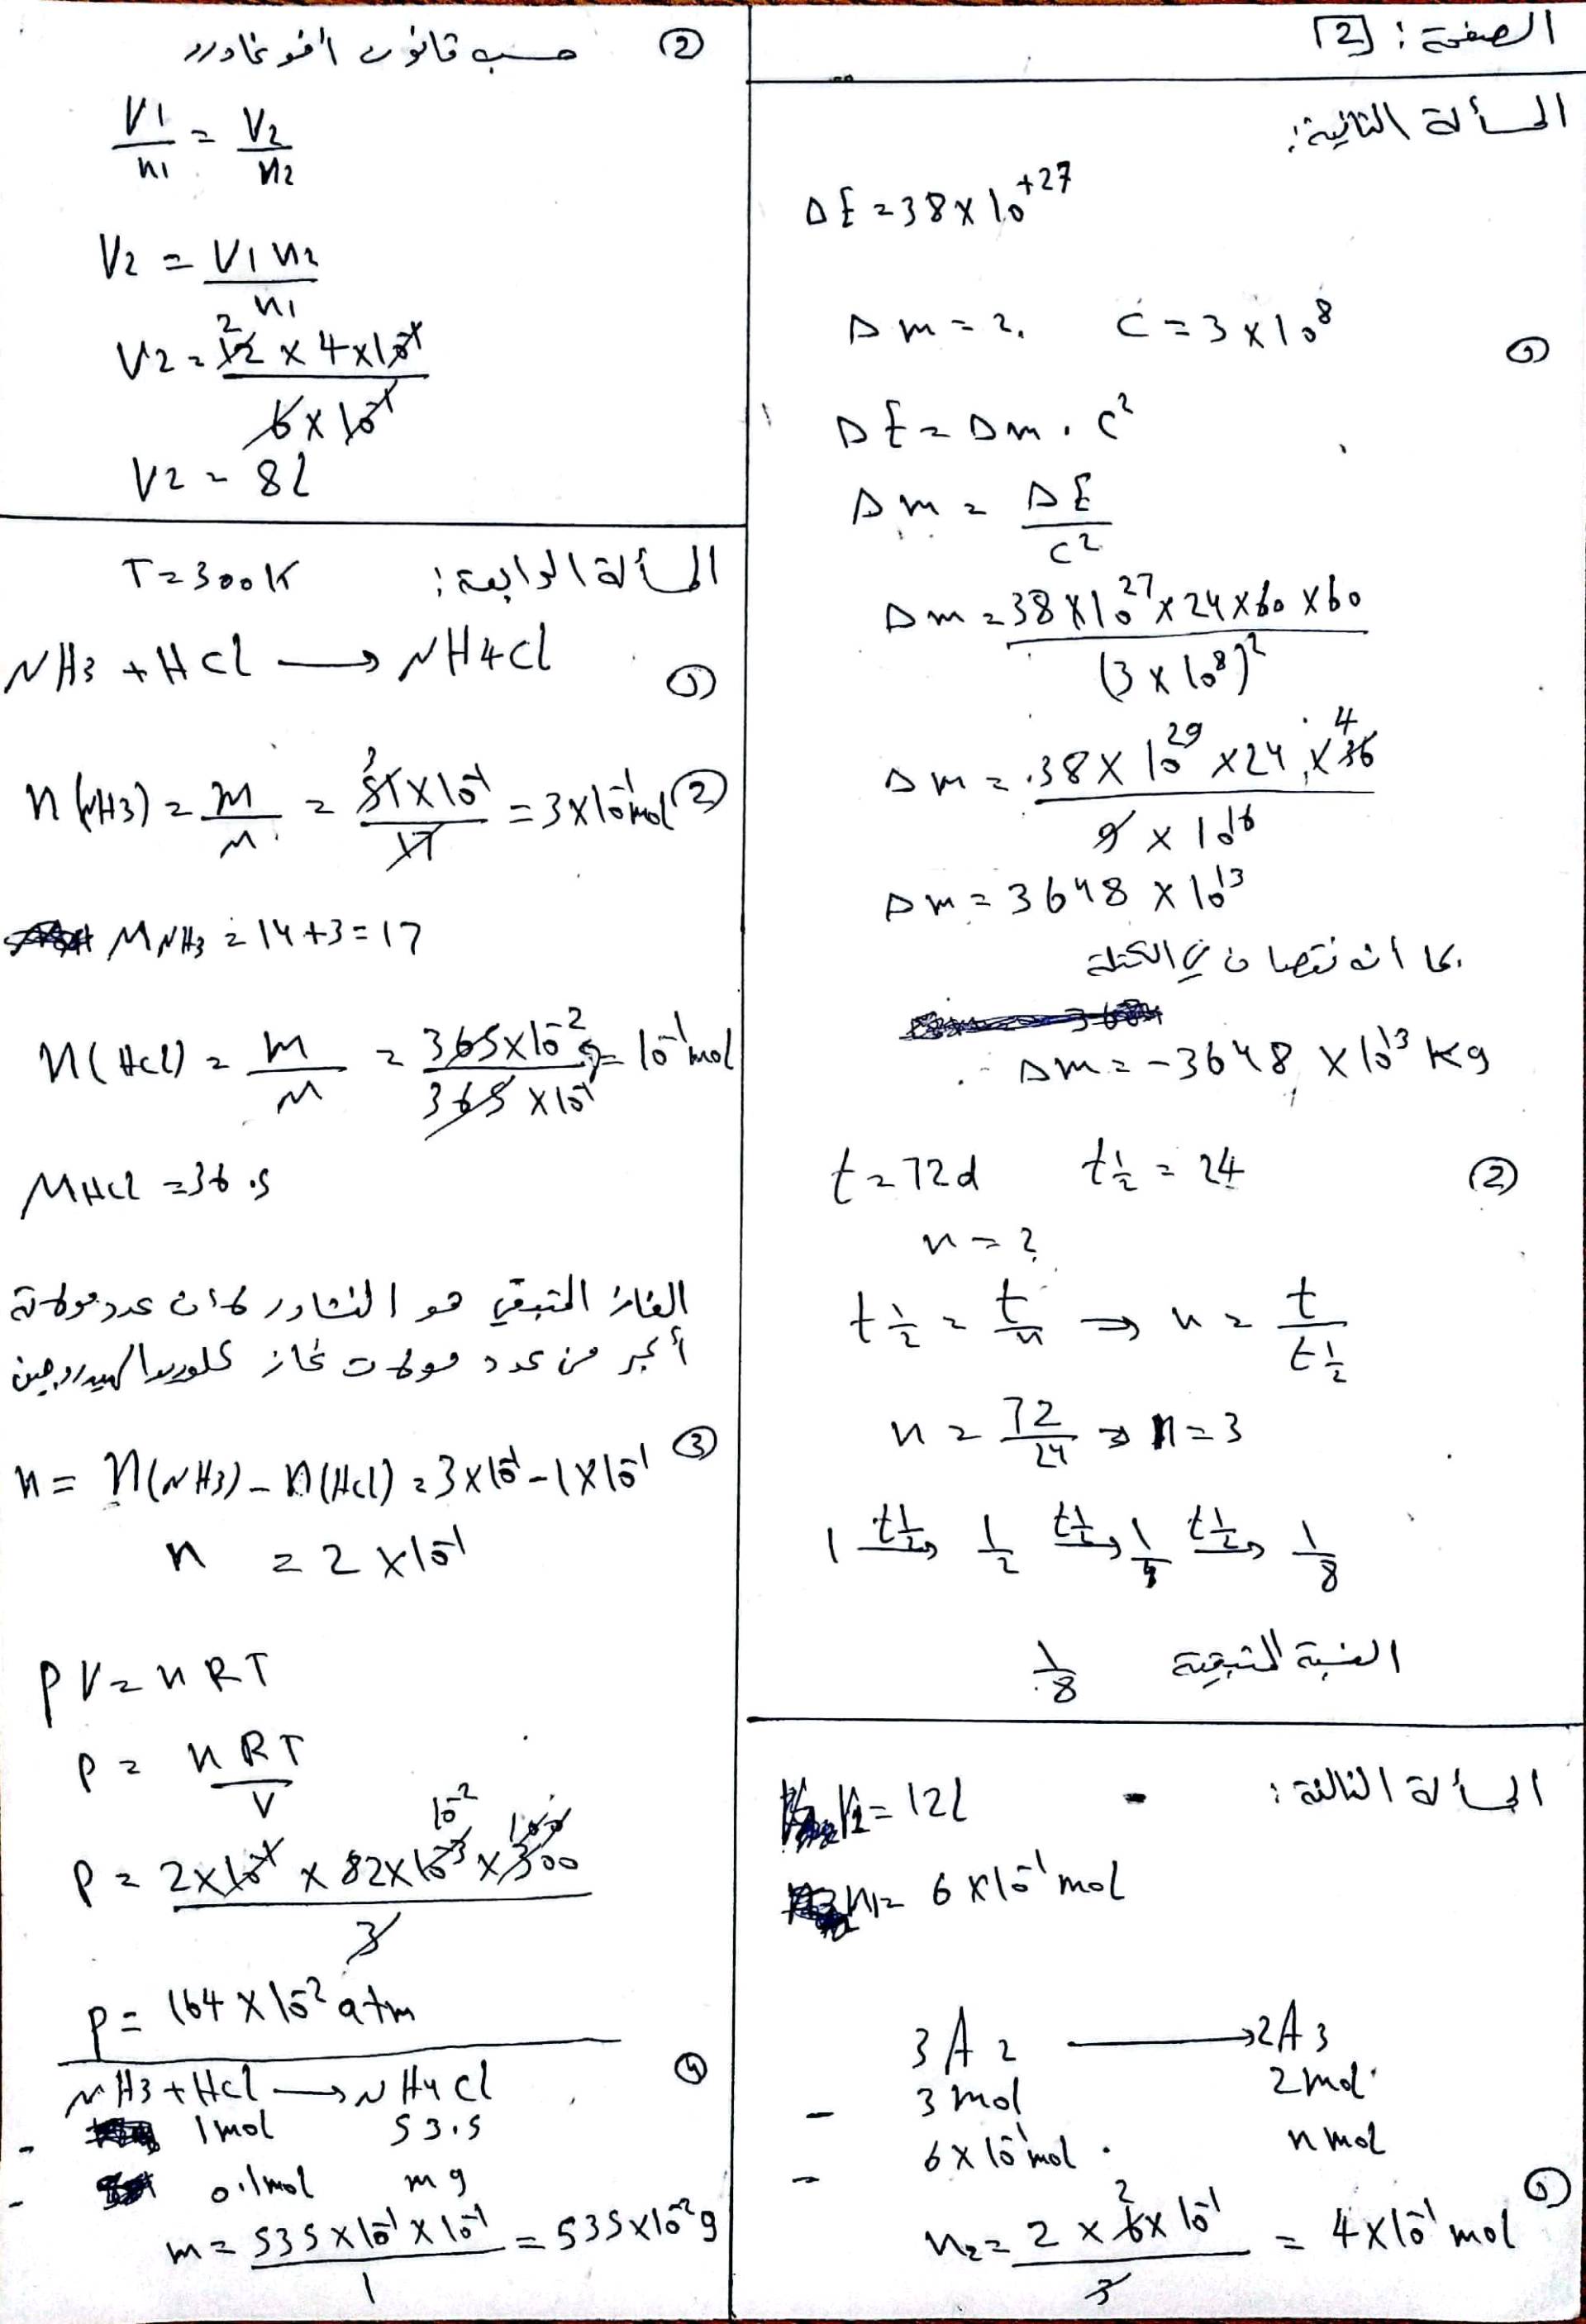 الصفحة: [2]
المسألة الثانية:
ΔE = 38 × 10^+27
Δm = ?. C = 3 × 10^8
①
ΔE = Δm . C²
Δm = ΔE / C²
Δm = 38 × 10^27 × 24 × 60 × 60 / (3 × 10^8)²
Δm = 38 × 10^29 × 24 × 36 4 / 9 × 10^16
Δm = 3648 × 10^13
بما أنه نقصان في الكتلة
∴ Δm = -3648 × 10^13 Kg
t = 72d t½ = 24 ②
n = ?
t½ = t / n ⇒ n = t / t½
n = 72 / 24 ⇒ n = 3
1 t½→ 1/2 t½→ 1/4 t½→ 1/8
النسبة المتبقية 1/8
المسألة الثالثة:
V1 = 12l
n1 = 6 × 10^-1 mol
3A2 → 2A3
3 mol 2 mol
6 × 10^-1 mol n mol
①
n2 = 2 × 6 2 × 10^-1 / 3 = 4 × 10^-1 mol
② حسب قانون أفوغادرو
V1 / n1 = V2 / n2
V2 = V1 n2 / n1
V2 = 12 2 × 4 × 10^-1 / 6 × 10^-1
V2 = 8l
المسألة الرابعة: T = 300K
NH3 + HCl → NH4Cl ①
n(NH3) = m / M = 51 3 × 10^-1 / 17 = 3 × 10^-1 mol ②
MNH3 = 14 + 3 = 17
n(HCl) = m / M = 365 × 10^-2 g / 365 × 10^-1 = 10^-1 mol
MHCl = 36.5
الغاز المتبقي هو النشادر لأن عدد مولاته
أكبر من عدد مولات غاز كلوريد الهيدروجين
③
n = n(NH3) - n(HCl) = 3 × 10^-1 - 1 × 10^-1
n = 2 × 10^-1
PV = nRT
P = nRT / V
P = 2 × 10^-1 × 82 × 10^-3 10^-2 × 300 100 / 3
P = 164 × 10^-2 atm
④
NH3 + HCl → NH4Cl
1 mol 53.5
0.1 mol m g
m = 535 × 10^-1 × 10^-1 / 1 = 535 × 10^-2 g